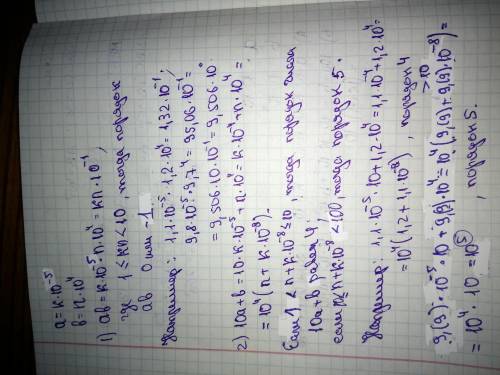 a = к·10⁻⁵
b = n·10⁴
1) ab = к·10⁻⁵·n·10⁴ = кn·10⁻¹,
где 1 ≤ кn < 10, тогда порядок
ab 0 или -1
Например: 1,1·10⁻⁵·1,2·10⁴ = 1,32·10⁻¹;
9,8·10⁻⁵·9,7⁴ = 95,06·10⁻¹ =
= 9,506·10·10⁻¹ = 9,506·10°
2) 10a+b = 10·к·10⁻⁵+n·10⁴ = к·10⁻⁴+n·10⁴ =
= 10⁴(n+к·10⁻⁸).
Если 1 < n+к·10⁻⁸ ≤ 10, тогда порядок числа
10a+b равен 4,
если n+к·10⁻⁸ < 100, тогда порядок 5.
Например: 1,1·10⁻⁵·10+1,2·10⁴ = 1,1·10⁻⁴+1,2·10⁴ =
= 10⁴(1,2+1,1·10⁻⁸), порядок 4
9,(9)·10⁻⁵·10+9,(9)·10⁴ = 10⁴(9,(9)+9,(9)·10⁻⁸) =
> 10
= 10⁴·10 = 10⁵, порядок 5.